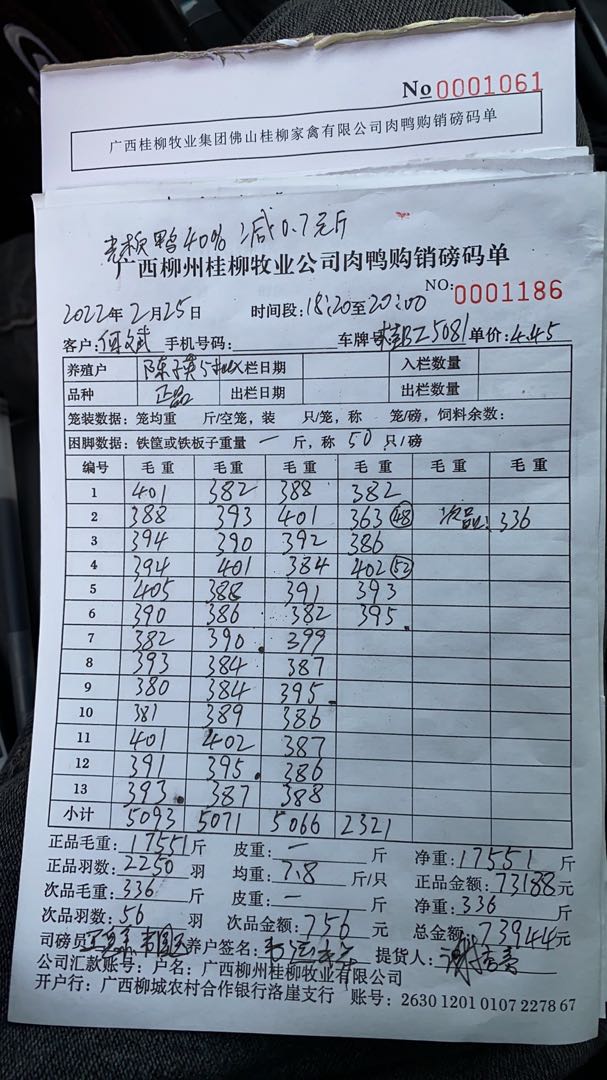 No 0001061
广西桂柳牧业集团佛山桂柳家禽有限公司肉鸭购销磅码单
光板鸭40% 减0.7元/斤
广西柳州桂柳牧业公司肉鸭购销磅码单
NO: 0001186
2022年2月25日 时间段:18:20至20:00
客户:何文斌 手机号码: 车牌号 桂BZ5081 单价:4.45
养殖户 入栏日期 入栏数量
品种 正品 出栏日期 出栏数量
笼装数据: 笼均重 斤/空笼, 装 只/笼, 称 笼/磅, 饲料余数:
困脚数据: 铁筐或铁板子重量 一 斤, 称 50 只/磅
编号 毛重 毛重 毛重 毛重 毛重 毛重
1 401 382 388 382
2 388 393 401 363 48 次品: 336
3 394 390 392 386
4 394 401 384 402 52
5 405 388 391 393
6 390 386 382 395.
7 382 390. 399
8 393 384 387
9 380 384 395.
10 381 389 386
11 401 402 387
12 391 395. 386
13 393. 387 388
小计 5093 5071 5066 2321
正品毛重: 17551 斤 皮重: 一 斤 净重: 17551 斤
正品羽数: 2250 羽 均重: 7.8 斤/只 正品金额: 73188 元
次品毛重: 336 斤 皮重: 一 斤 净重: 336 斤
次品羽数: 56 羽 次品金额: 756 元 总金额: 73944 元
司磅员 养户签名: 提货人:
公司汇款账号: 户名: 广西柳州桂柳牧业有限公司
开户行: 广西柳城农村合作银行洛崖支行 账号: 2630 1201 0107 2278 67